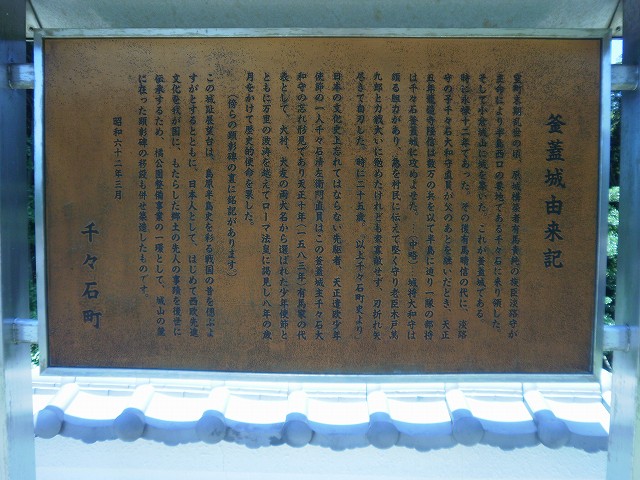 釜蓋城由来記
室町末期戦世の頃、原城構築者有馬貴純の家臣淡路守が
主命により半島西口の要地である千々石に乗り領した。
そしてこの城山に城を築いた。これが釜蓋城である。
時に永禄十二年であった。その後有馬晴信の代に、淡路
守の子千々石大和守直員が父のあとを継いだとき、天正
五年龍造寺隆信は数万の兵を以て半島に迫り一隊の部将
は千々石釜蓋城に攻めよせた。…(中略)…城将大和守は
頗る胆力があり、急を村民に伝えて堅く守り老臣木戸萬
九郎と力戦大いに勉めたけれども衆寡敵せず、刀折れ矢
尽きて自刃した。時に二十五歳。(以上千々石町史より)
日本の文化史上忘れてはならない先駆者、天正遣欧少年
使節の一人千々石清左衛門直員はこの釜蓋城主千々石大
和守の忘れ形見であり天正十年(一五八二)有馬家の代
表として、大村、大友の両大名から選ばれた少年使節と
ともに万里の波涛を越えてローマ法皇に謁見し八年の歳
月をかけて歴史的使命を果した。
(傍らの顕彰碑の裏に銘記があります)
この城跡展望台は、島原半島史を彩る戦国の昔を偲ぶよ
すがとするとともに、日本人として、はじめて西欧先進
文化を我が国に、もたらした郷土の先人の事蹟を後世に
伝承するため、橘公園整備事業の一環として、城山の麓
に在った顕彰碑の移設も併せ築造したものです。
昭和六十二年三月
千々石町